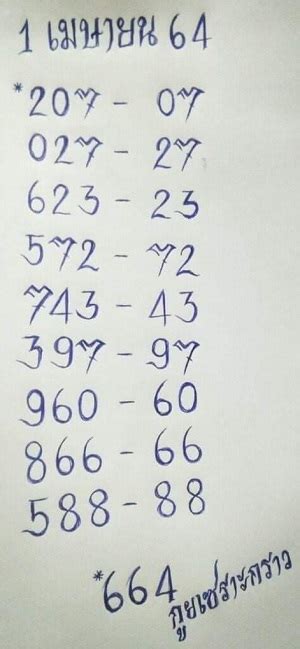 1 เมษายน 64
*207 - 07
027 - 27
623 - 23
572 - 72
743 - 43
397 - 97
960 - 60
866 - 66
588 - 88
*664